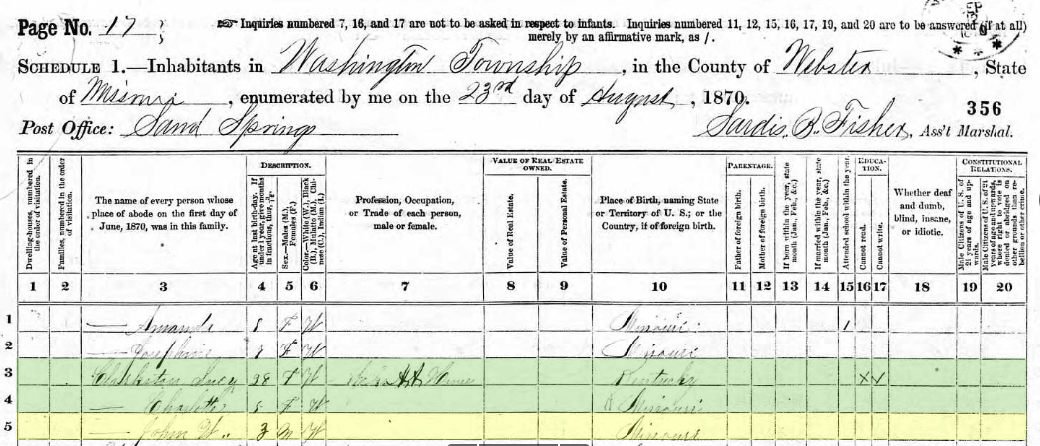 Page No. 17
☞ Inquiries numbered 7, 16, and 17 are not to be asked in respect to infants. Inquiries numbered 11, 12, 15, 16, 17, 19, and 20 are to be answered (if at all)
merely by an affirmative mark, as /.
SCHEDULE 1.—Inhabitants in Washington Township, in the County of Webster, State
of Missouri, enumerated by me on the 23rd day of August, 1870.
356
Post Office: Sand Springs
Sardis R. Fisher, Ass't Marshal.
Dwelling-houses, numbered in the order of visitation.
Families, numbered in the order of visitation.
The name of every person whose place of abode on the first day of June, 1870, was in this family.
DESCRIPTION.
Age at last birth-day. If under 1 year, give months in fractions, thus, 3/12
Sex.—Males (M.), Females (F.)
Color.—White (W.), Black (B.), Mulatto (M.), Chinese (C.), Indian (I.)
Profession, Occupation, or Trade of each person, male or female.
VALUE OF REAL ESTATE OWNED.
Value of Real Estate.
Value of Personal Estate.
Place of Birth, naming State or Territory of U. S.; or the Country, if of foreign birth.
PARENTAGE.
Father of foreign birth.
Mother of foreign birth.
If born within the year, state month (Jan. Feb., &c.)
If married within the year, state month (Jan., Feb., &c.)
Attended school within the year.
EDUCATION.
Cannot read.
Cannot write.
Whether deaf and dumb, blind, insane, or idiotic.
CONSTITUTIONAL RELATIONS.
Male Citizens of U. S. of 21 years of age and upwards.
Male Citizens of U. S. of 21 years of age and upwards, where right to vote is denied or abridged on other grounds than rebellion or other crime.
1 2 3 4 5 6 7 8 9 10 11 12 13 14 15 16 17 18 19 20
1 — Amanda F W Missouri 1
2 — Josephine F W Missouri
3 Lucy 38 F W Kentucky
4 — Charlotte F W Missouri
5 — John W. 3 M W Missouri